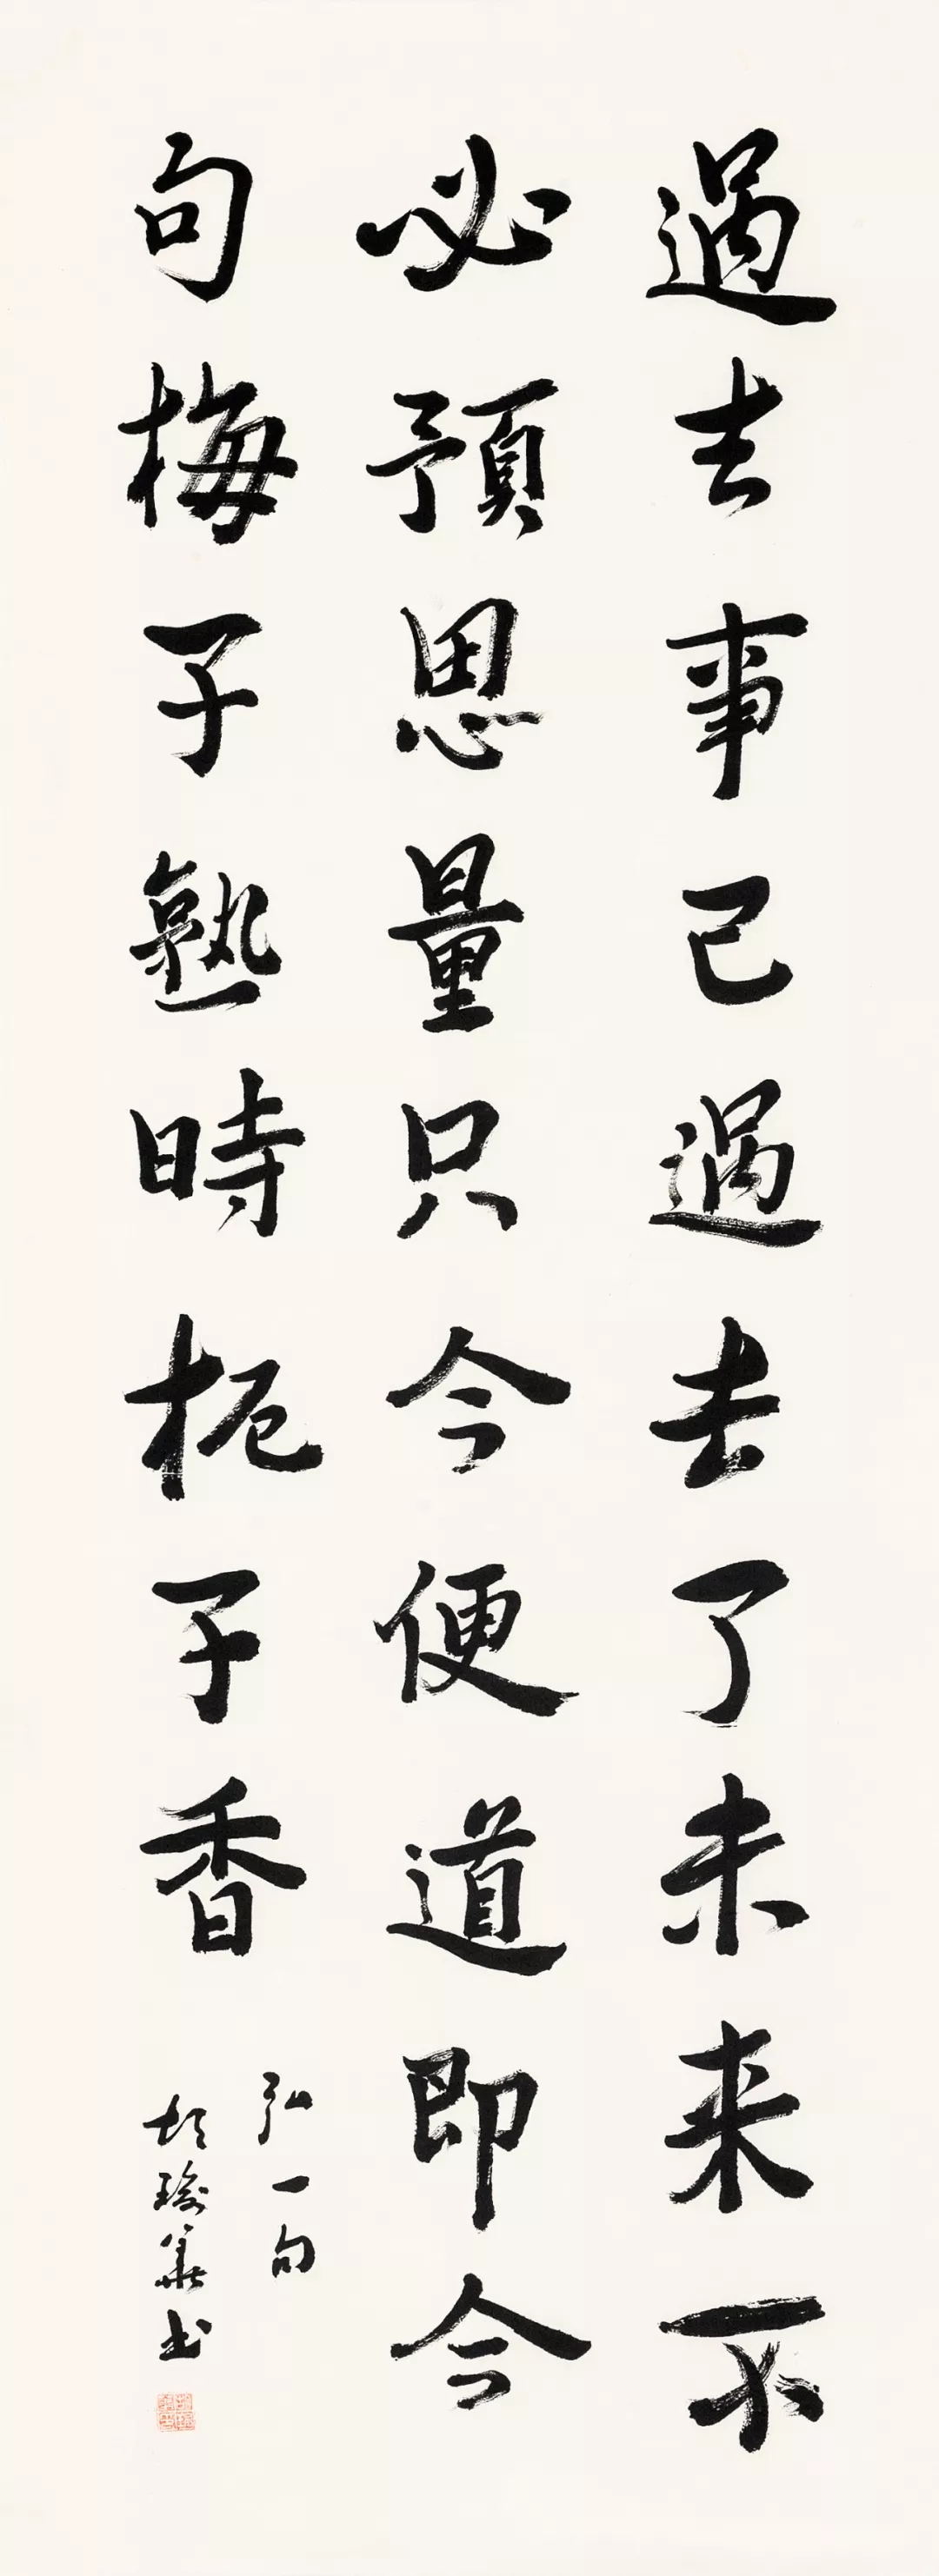 過去事已過去了未来不
必預思量只今便道即今
句梅子熟時栀子香
弘一句
胡瑜華书